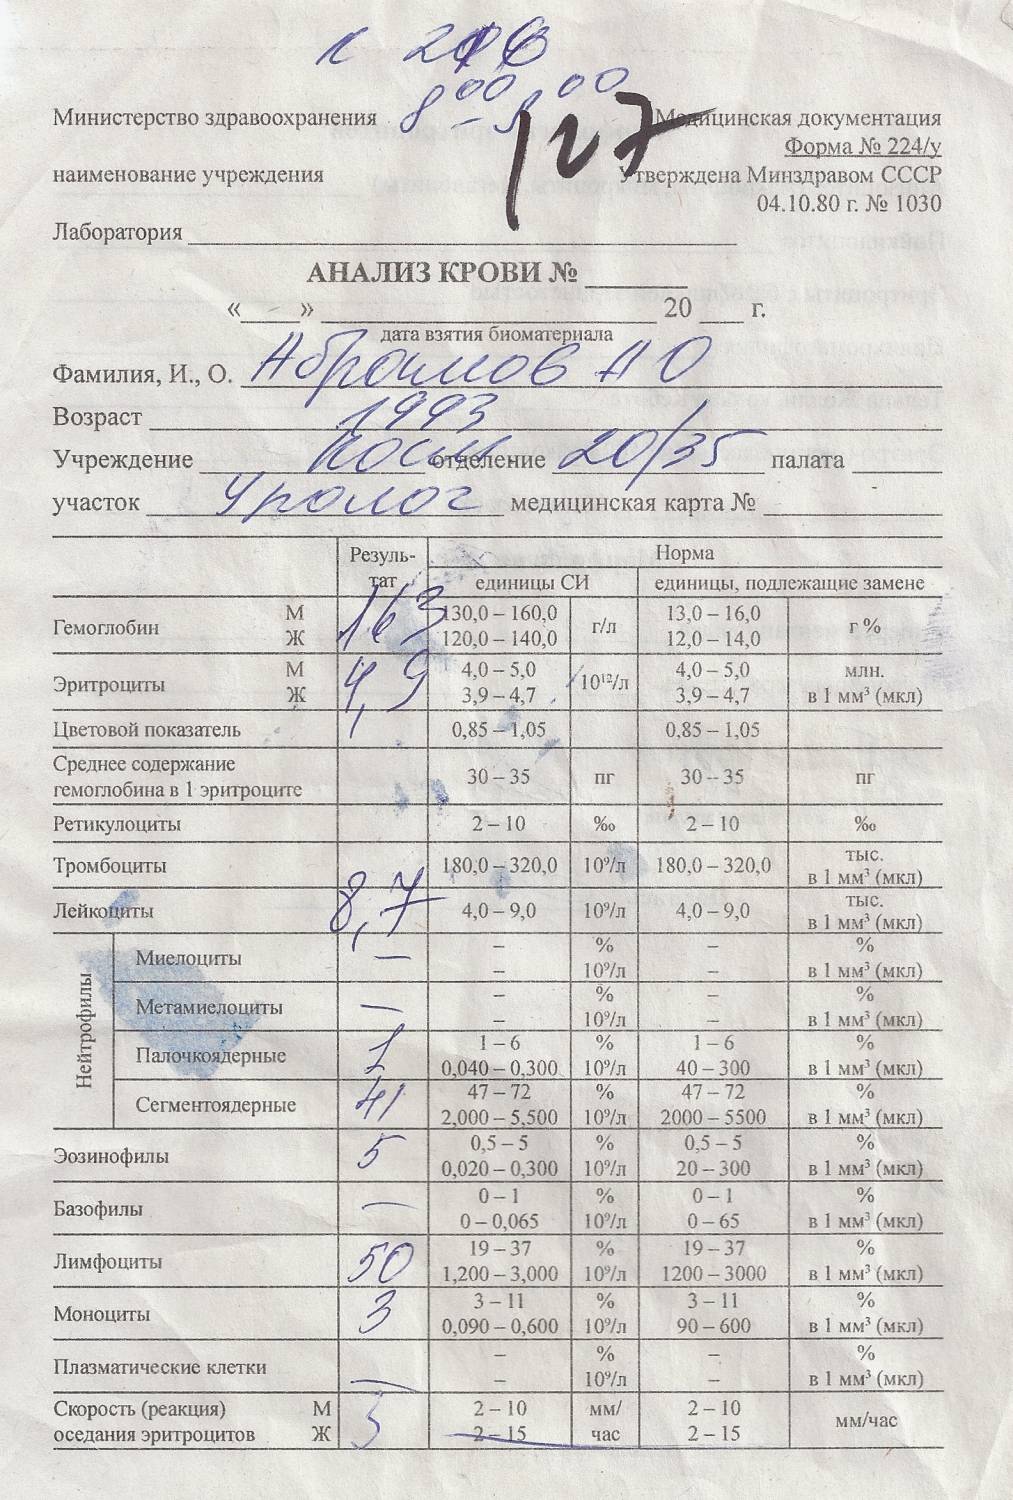 к 206
8⁰⁰ – 9⁰⁰
127
Министерство здравоохранения
Медицинская документация
Форма № 224/у
наименование учреждения
Утверждена Минздравом СССР
04.10.80 г. № 1030
Лаборатория
АНАЛИЗ КРОВИ №
« » 20 г.
дата взятия биоматериала
Фамилия, И., О. Абрамов А О
Возраст 1993
Учреждение отделение 20/35 палата
участок Уролог медицинская карта №
Резуль-тат Норма
единицы СИ единицы, подлежащие замене
Гемоглобин М Ж 163 130,0 – 160,0 120,0 – 140,0 г/л 13,0 – 16,0 12,0 – 14,0 г %
Эритроциты М Ж 4,9 4,0 – 5,0 3,9 – 4,7 10¹²/л 4,0 – 5,0 3,9 – 4,7 млн. в 1 мм³ (мкл)
Цветовой показатель 0,85 – 1,05 0,85 – 1,05
Среднее содержание гемоглобина в 1 эритроците 30 – 35 пг 30 – 35 пг
Ретикулоциты 2 – 10 ‰ 2 – 10 ‰
Тромбоциты 180,0 – 320,0 10⁹/л 180,0 – 320,0 тыс. в 1 мм³ (мкл)
Лейкоциты 8,7 4,0 – 9,0 10⁹/л 4,0 – 9,0 тыс. в 1 мм³ (мкл)
Нейтрофилы
Миелоциты — – – % 10⁹/л – – % в 1 мм³ (мкл)
Метамиелоциты — – – % 10⁹/л – – % в 1 мм³ (мкл)
Палочкоядерные 1 1 – 6 0,040 – 0,300 % 10⁹/л 1 – 6 40 – 300 % в 1 мм³ (мкл)
Сегментоядерные 41 47 – 72 2,000 – 5,500 % 10⁹/л 47 – 72 2000 – 5500 % в 1 мм³ (мкл)
Эозинофилы 5 0,5 – 5 0,020 – 0,300 % 10⁹/л 0,5 – 5 20 – 300 % в 1 мм³ (мкл)
Базофилы — 0 – 1 0 – 0,065 % 10⁹/л 0 – 1 0 – 65 % в 1 мм³ (мкл)
Лимфоциты 50 19 – 37 1,200 – 3,000 % 10⁹/л 19 – 37 1200 – 3000 % в 1 мм³ (мкл)
Моноциты 3 3 – 11 0,090 – 0,600 % 10⁹/л 3 – 11 90 – 600 % в 1 мм³ (мкл)
Плазматические клетки — – – % 10⁹/л – – % в 1 мм³ (мкл)
Скорость (реакция) оседания эритроцитов М Ж 3 2 – 10 2 – 15 мм/час 2 – 10 2 – 15 мм/час